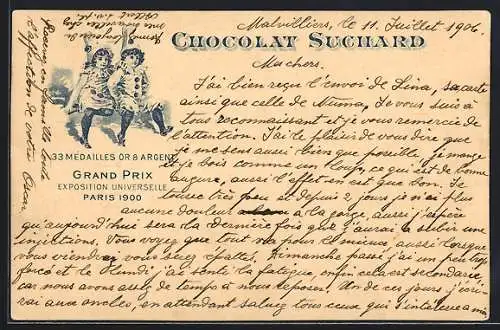 Malvilliers, le 11 Juillet 1906.
CHOCOLAT SUCHARD
33 MÉDAILLES OR & ARGENT
GRAND PRIX
EXPOSITION UNIVERSELLE
PARIS 1900
Mes chers.
J'ai bien reçu l'envoi de Lina, sa carte
ainsi que celle de Numa, je vous suis à
tous reconnaissant et je vous remercie de
l'attention. J'ai le plaisir de vous dire que
je me sens aussi bien que possible je mange
et je bois comme un loup, ce qui est de bonne
augure, aussi l'effet en est que bon. Je
tousse très peu et depuis 2 jours je n'ai plus
aucune douleur à la gorge, aussi j'espère
qu'aujourd'hui sera la dernière fois que j'aurai à subir une
injection. Vous voyez que tout va pour le mieux, aussi lorsque
vous viendrez vous serez épatés. Dimanche passé j'ai un peu trop
forcé et le lundi j'ai senti la fatigue, enfin cela est secondaire
car nous avons assez de temps à nous reposer. Un de ces jours j'écri-
rai aux oncles, en attendant saluez tous ceux qui s'intéresse à moi
Recevez
d'affection de votre Oscar